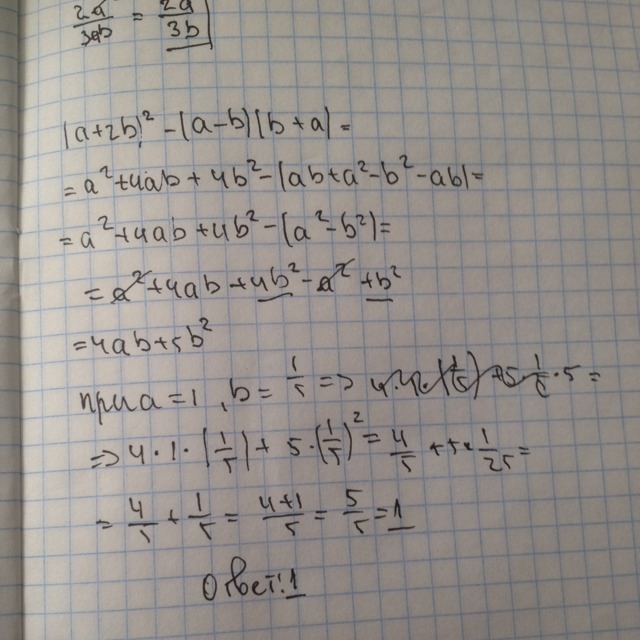 2a/3ab = 2a/3b
(a+2b)² - (a-b)(b+a) =
= a² + 4ab + 4b² - (ab + a² - b² - ab) =
= a² + 4ab + 4b² - (a² - b²) =
= a² + 4ab + 4b² - a² + b²
= 4ab + 5b²
при a = 1, b = 1/5 =>
=> 4 · 1 · (1/5) + 5 · (1/5)² = 4/5 + 5 · 1/25 =
= 4/5 + 1/5 = 4+1/5 = 5/5 = 1
Ответ: 1